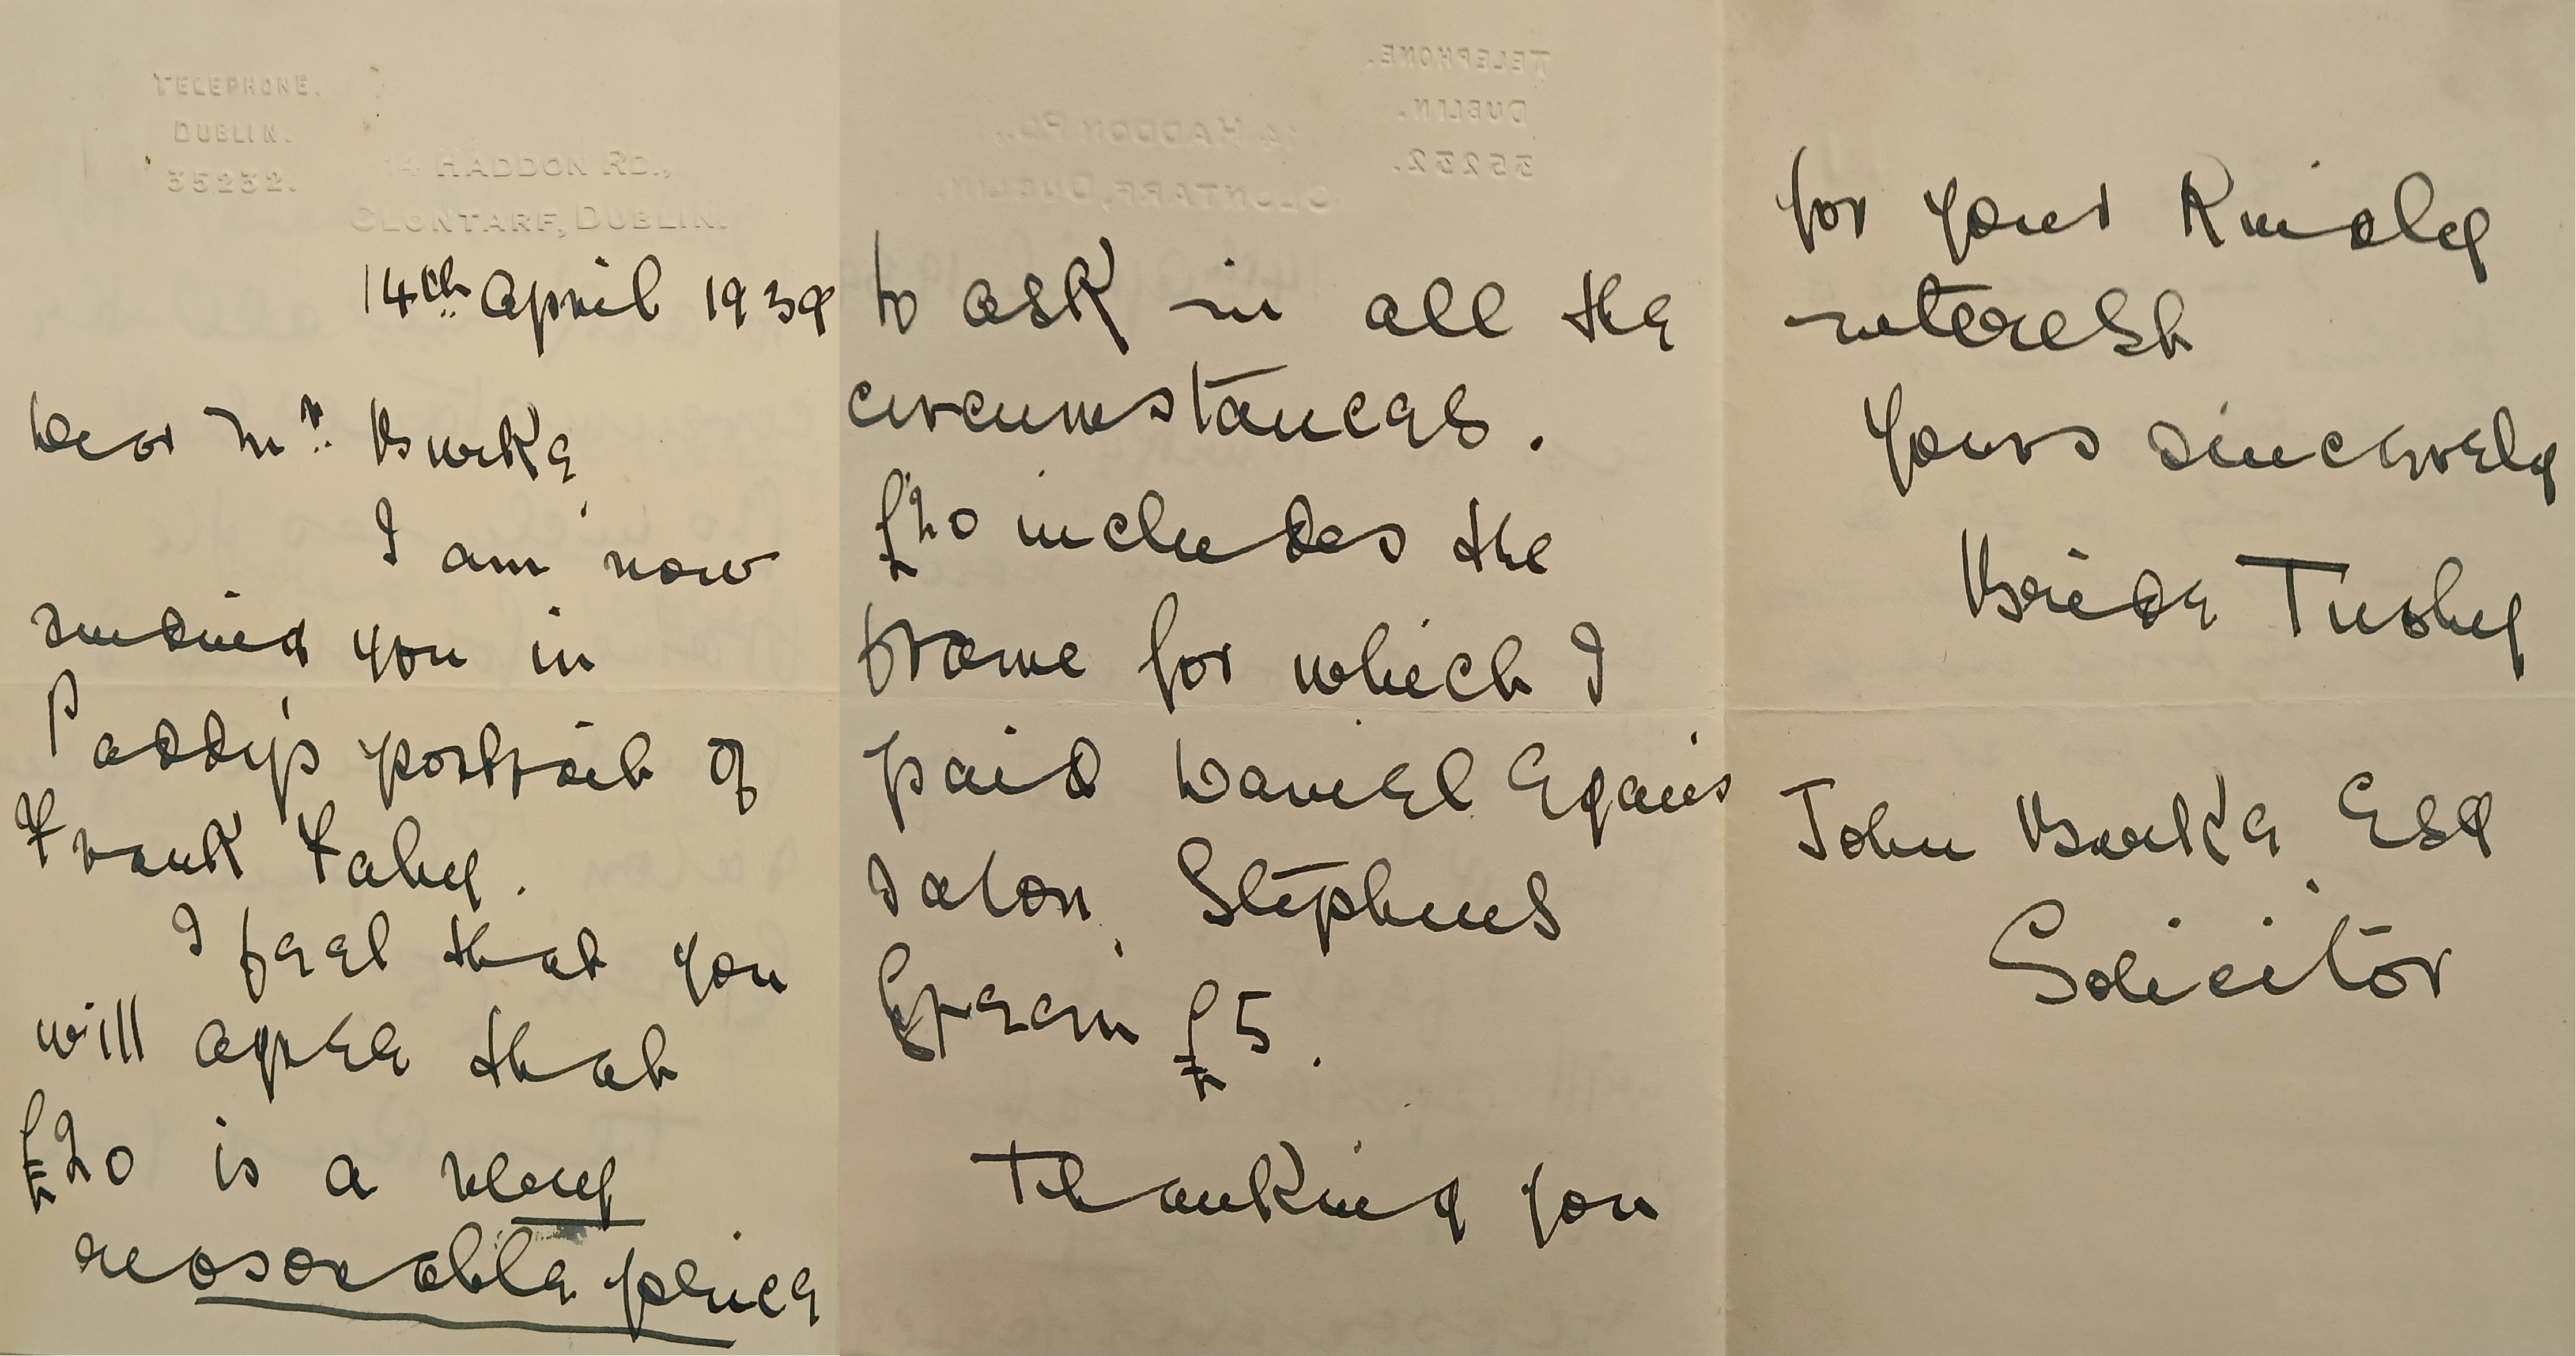 TELEPHONE.
DUBLIN.
35232.
14 HADDON RD.,
CLONTARF, DUBLIN.
14th April 1939
Dear Mr. Burke,
I am now
sending you in
Paddy's portrait of
Frank Fahy.
I feel that you
will agree that
£20 is a very
reasonable price
TELEPHONE.
DUBLIN.
35232.
14 HADDON RD.,
CLONTARF, DUBLIN.
to ask in all the
circumstances.
£20 includes the
frame for which I
paid Daniel Egan's
Salon, Stephens
Green £5.
Thanking you
for your kindly
interest
Yours sincerely
Bride Tuohy
John Burke Esq
Solicitor